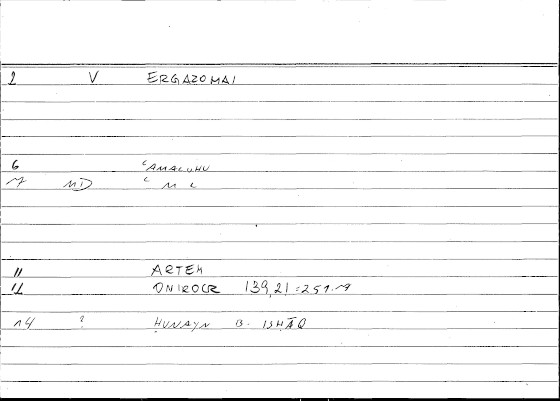 2 V ERGAZOMAI
6 ʿAMALUHU
7 MD ʿ M L
11 ARTEM
12 ONIROCR 139,21 = 251.9
14 ? ḤUNAYN B. ISḤĀQ